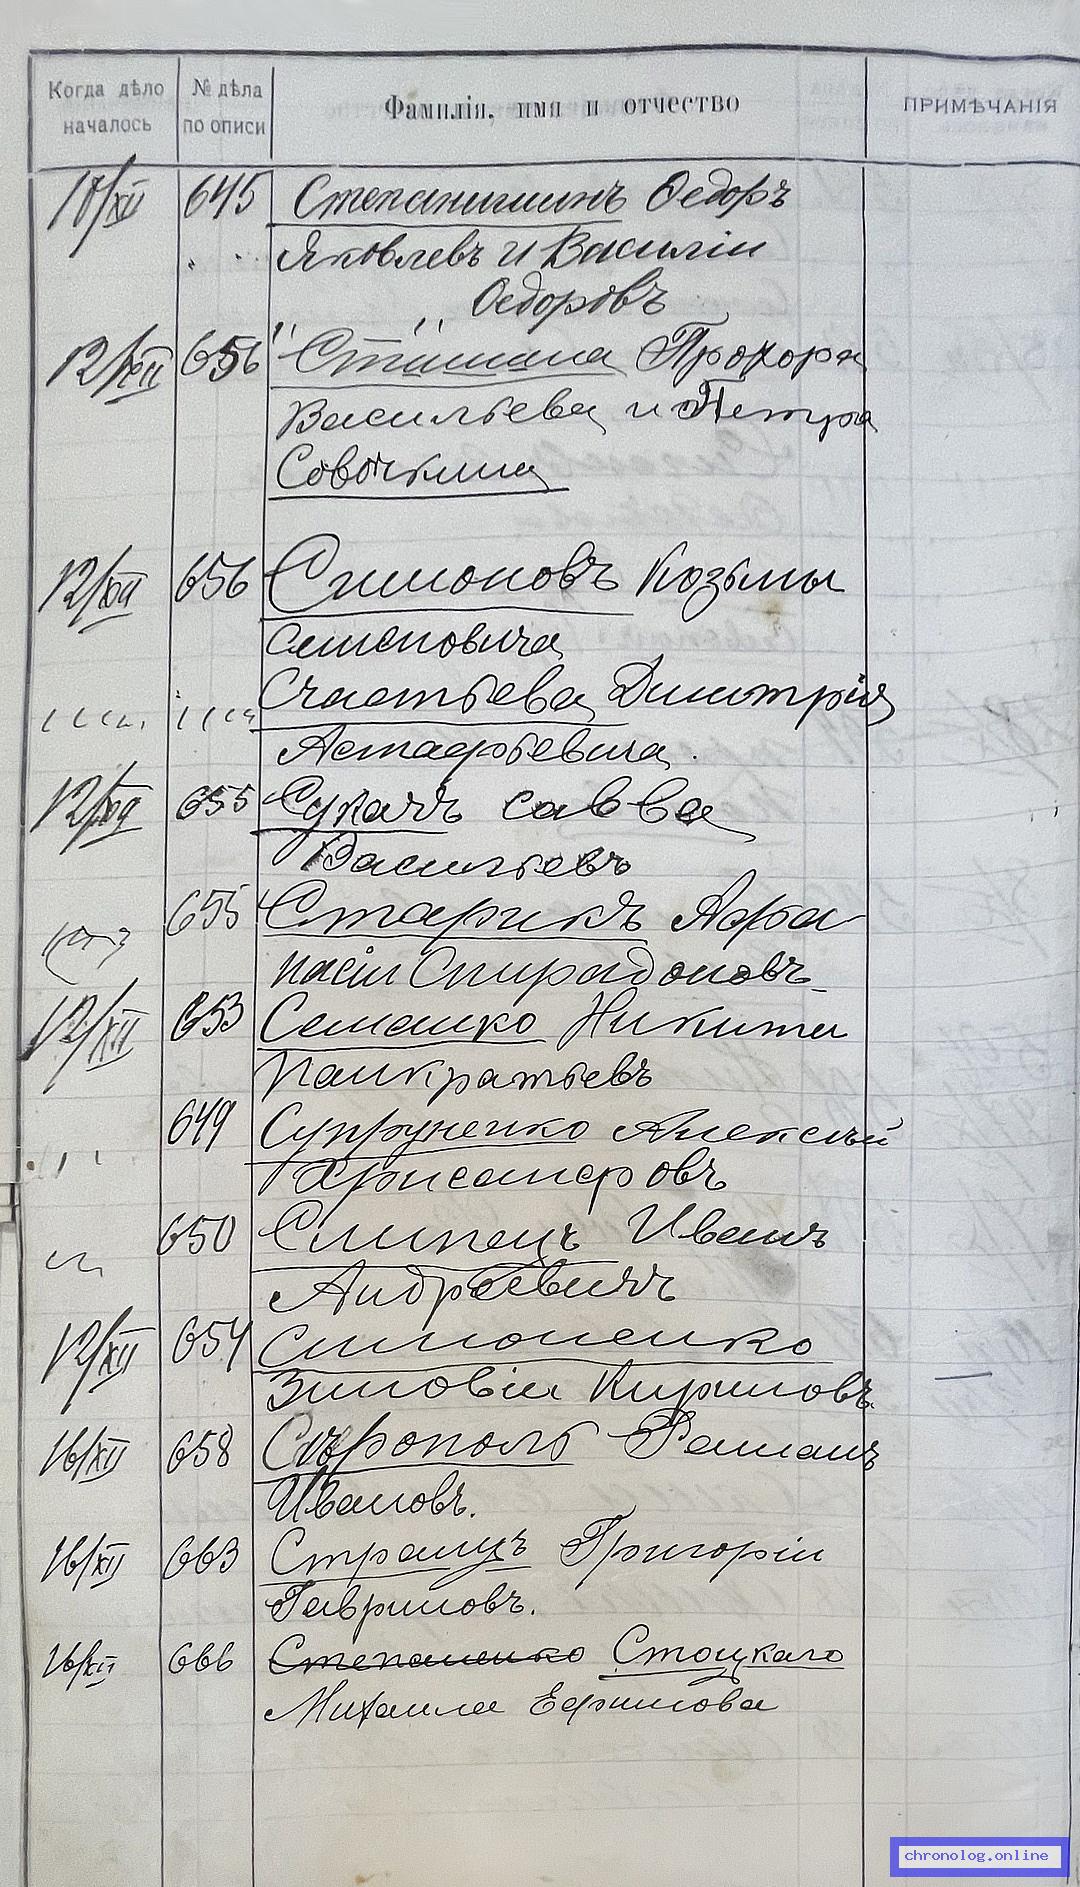 Когда дѣло началось № дѣла по описи Фамилія, имя и отчество ПРИМѢЧАНІЯ
10/XII 645 Степанишинъ Ѳедоръ
Яковлевъ и Василіи
Ѳедоровъ
12/XII 656 Прохора
Васильева и Петра
Совочкина
12/XII 656 Симоновъ Козьмы
Семеновича
Счастьева Димитрія
Астафьевича.
12/XII 655 Сукачъ Савва
Васильевъ
655 Старикъ Афа
насіи Спиридоновъ
12/XII 653 Семенко Никита
Панкратьевъ
649 Супруненко Алексѣй
Хрисанфовъ
650 Слипецъ Иванъ
Андреевичъ
12/XII 654 Симоненко
Зиновіи Кириловъ.
16/XII 658 Романъ
Ивановъ.
16/XII 663 Григоріи
Гавриловъ.
16/XII 666 Степаненко Стоцкаго
Михаила Ефимова
chronolog.online